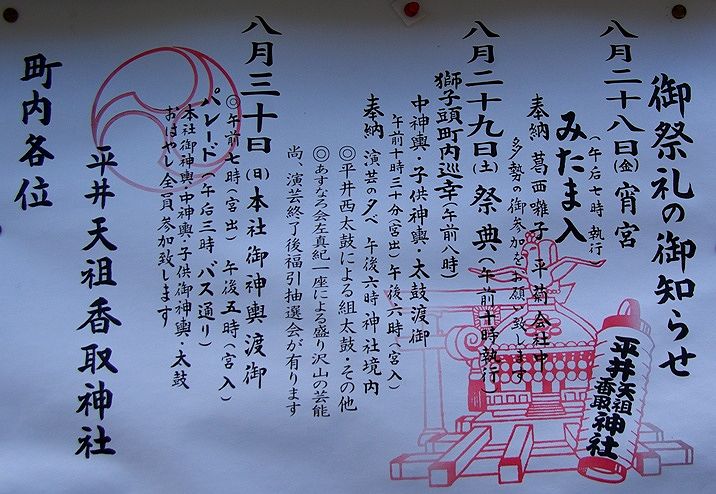 御祭礼の御知らせ
八月二十八日(金)宵宮
(午后七時執行)
みたま入
奉納 葛西囃子 平井菊会社中
多勢の御参加をお願い致します
八月二十九日(土)祭典(午前十時執行)
獅子頭町内巡幸(午前八時)
中神輿・子供神輿・太鼓渡御
午前十時三十分(宮出)午後六時(宮入)
奉納 演芸の夕べ 午後六時 神社境内
◎平井西太鼓による組太鼓・その他
◎あすなろ会左真紀一座による盛り沢山の芸能
尚、演芸終了後福引抽選会が有ります
八月三十日(日)本社御神輿渡御
◎午前七時(宮出) 午後五時(宮入)
パレード(午后三時 バス通り)
本社御神輿・中神輿・子供御神輿・太鼓
おはやし全員参加致します
平井天祖香取神社
町内各位
平井天祖香取神社